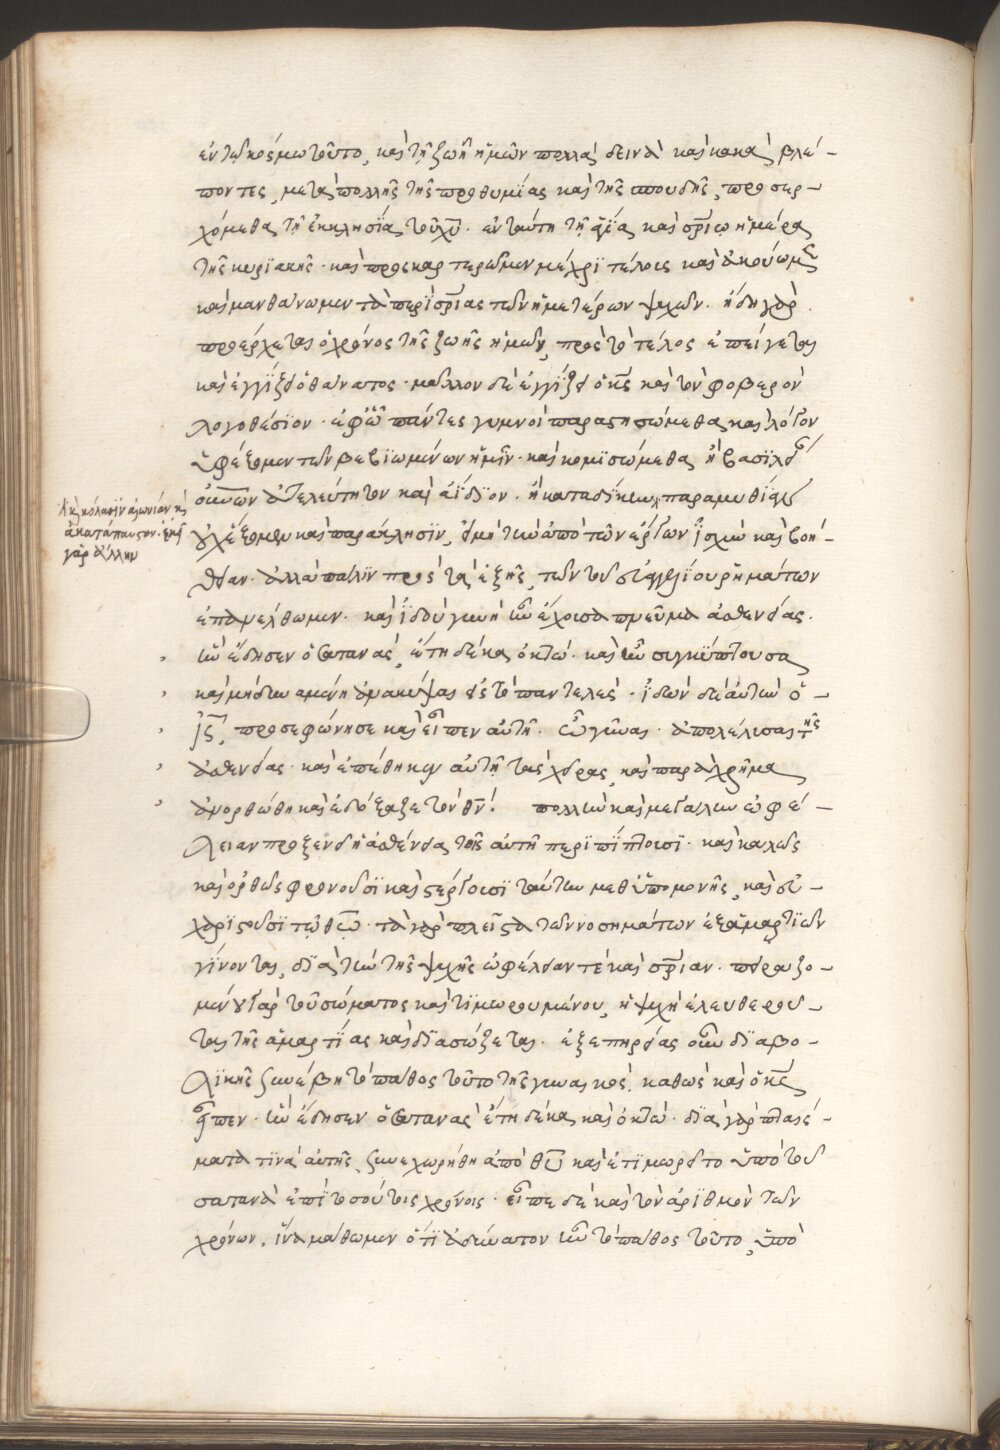 ἐν τῷ κόσμω τοῦτο, καὶ τῆ ζωῆ ἡμῶν πολλὰ δεινὰ καὶ κακὰ βλέ-
ποντες, μετὰ πολλῆς τῆς προθυμίας καὶ τῆς σπουδῆς, προσερ-
χόμεθα τῆ ἐκκλησία τοῦ χῦ. ἐν ταύτη τῆ ἁγία καὶ σρίω ἡμέρα
τῆς κυριακῆς. καὶ προσκαρτερῶμεν μέχρι τέλους καὶ ἀκούωμεν
καὶ μανθάνωμεν τὰ περὶ σρίας τῶν ἡμετέρων ψυχῶν. ἤδη γὰρ
προέρχεται ὁ χρόνος τῆς ζωῆς ἡμῶν, πρὸς τὸ τέλος ἐπείγεται
καὶ ἐγγίζει ὁ θάνατος. μᾶλλον δὲ ἐγγίζει ὁ κς καὶ τὸν φοβερὸν
λογοθέσιον. ἐφ' ᾧ πάντες γυμνοὶ παραστησώμεθα καὶ λόγον
ὑφέξομεν τῶν βεβιωμένων ἡμῖν. καὶ κομισώμεθα ἢ βασιλείαν
οὐνῶν ἀτελεύτητον καὶ ἀΐδιον. ἢ καταδίκην, παραμυθίαν
οὐχ ἕξομεν καὶ παράκλησιν, εἰ μὴ τὴν ἀπὸ τῶν ἔργων ἰσχὺν καὶ βοή-
θειαν. ἀλλὰ πάλιν πρὸς τὰ ἑξῆς, τῶν τοῦ εὐαγγελίου ῥημάτων
ἐπανέλθωμεν. καὶ ἰδοὺ γυνὴ ἦν ἔχουσα πνεῦμα ἀσθενείας.
ἣν ἔδησεν ὁ σατανὰς, ἔτη δέκα ὀκτώ. καὶ ἦν συγκύπτουσα
καὶ μὴ δυναμένη ἀνακύψαι εἰς τὸ παντελές. ἰδὼν δὲ αὐτὴν ὁ
ις, προσεφώνησε καὶ εἶπεν αὐτῆ. ὦ γύναι. ἀπολέλυσαι τῆς
ἀσθενείας. καὶ ἐπέθηκεν αὐτῆ τὰς χεῖρας, καὶ παραχρῆμα
ἀνορθώθη καὶ ἐδόξαζε τὸν θν! πολλὴν καὶ μεγάλην ὠφέ-
λειαν προξενεῖ ἡ ἀσθένεια τοῖς αὐτῆ περιπίπτουσι. καὶ καλῶς
καὶ ὀρθῶς φρονοῦσι καὶ στέργουσι ταύτην μεθ' ὑπομονῆς, καὶ εὐ-
χαριστοῦσι τῷ θῶ. τὰ γὰρ πλεῖστα τῶν νοσημάτων ἐξ ἁμαρτιῶν
γίνονται, διὰ τὴν τῆς ψυχῆς ὠφέλειάν τε καὶ σρίαν. πειραζο-
μένου γὰρ τοῦ σώματος καὶ τιμωρουμένου, ἡ ψυχὴ ἐλευθεροῦ-
ται τῆς ἁμαρτίας καὶ διασώζεται. ἐξ ἐπηρείας οὖν διαβο-
λικῆς συνέβη τὸ πάθος τοῦτο τῆς γυναικός, καθὼς καὶ ὁ κς
εἶπεν. ἣν ἔδησεν ὁ σατανὰς ἔτη δέκα καὶ ὀκτώ. διὰ γὰρ πταισέ-
ματα τινὰ αὐτῆς, συνεχωρήθη ἀπὸ θῦ καὶ ἐτιμωρεῖτο ὑπὸ τοῦ
σατανᾶ ἐπὶ τοσούτοις χρόνοις. εἶπε δὲ καὶ τὸν ἀριθμὸν τῶν
χρόνων, ἵνα μάθωμεν ὅτι ἀδύνατον ἦν τὸ πάθος τοῦτο, ὑπὸ
ἢ κόλασιν αἰωνίαν καὶ
ἀκατάπαυστον. ἐκεῖ
γὰρ ἄλλην